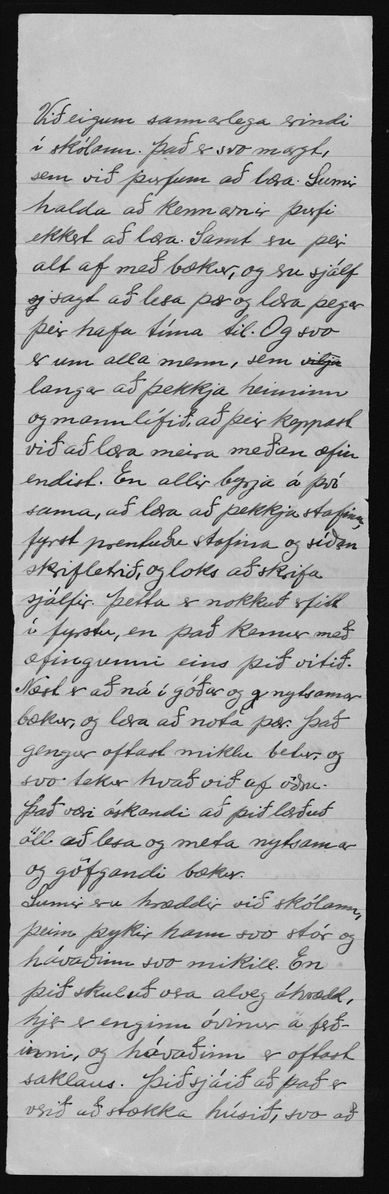 Við eigum sannarlega erindi
í skólann. Það er svo margt,
sem við þurfum að læra. Sumir
halda að kennarnir þurfi
ekkert að læra. Samt eru þeir
alt af með bækur, og eru sjálf
sagt að lesa þær og læra þegar
þeir hafa tíma til. Og svo
er um alla menn, sem vilja
langar að þekkja heiminn
og mannlífið, að þeir keppast
við að læra meira meðan æfin
endist. En allir byrja á því
sama, að læra að þekkja stafina,
fyrst prentuðu stafina og síðan
skrifletrið, og loks að skrifa
sjálfir. Þetta er nokkuð erfitt
í fyrstu, en það kemur með
æfingunni eins þið vitið.
Næst er að ná í góðar og nytsamar
bækur, og læra að nota þær. Það
gengur oftast miklu betur, og
svo tekur hvað við af öðru.
Það væri óskandi að þið lærðuð
öll að lesa og meta nytsamar
og göfgandi bækur.
Sumir eru hræddir við skólann,
þeim þykir hann svo stór og
hávaðinn svo mikill. En
þið skuluð vera alveg óhrædd,
hjer er enginn óvinur á ferð-
inni, og hávaðinn er oftast
saklaus. Þið sjáið að það er
verið að stækka húsið, svo að